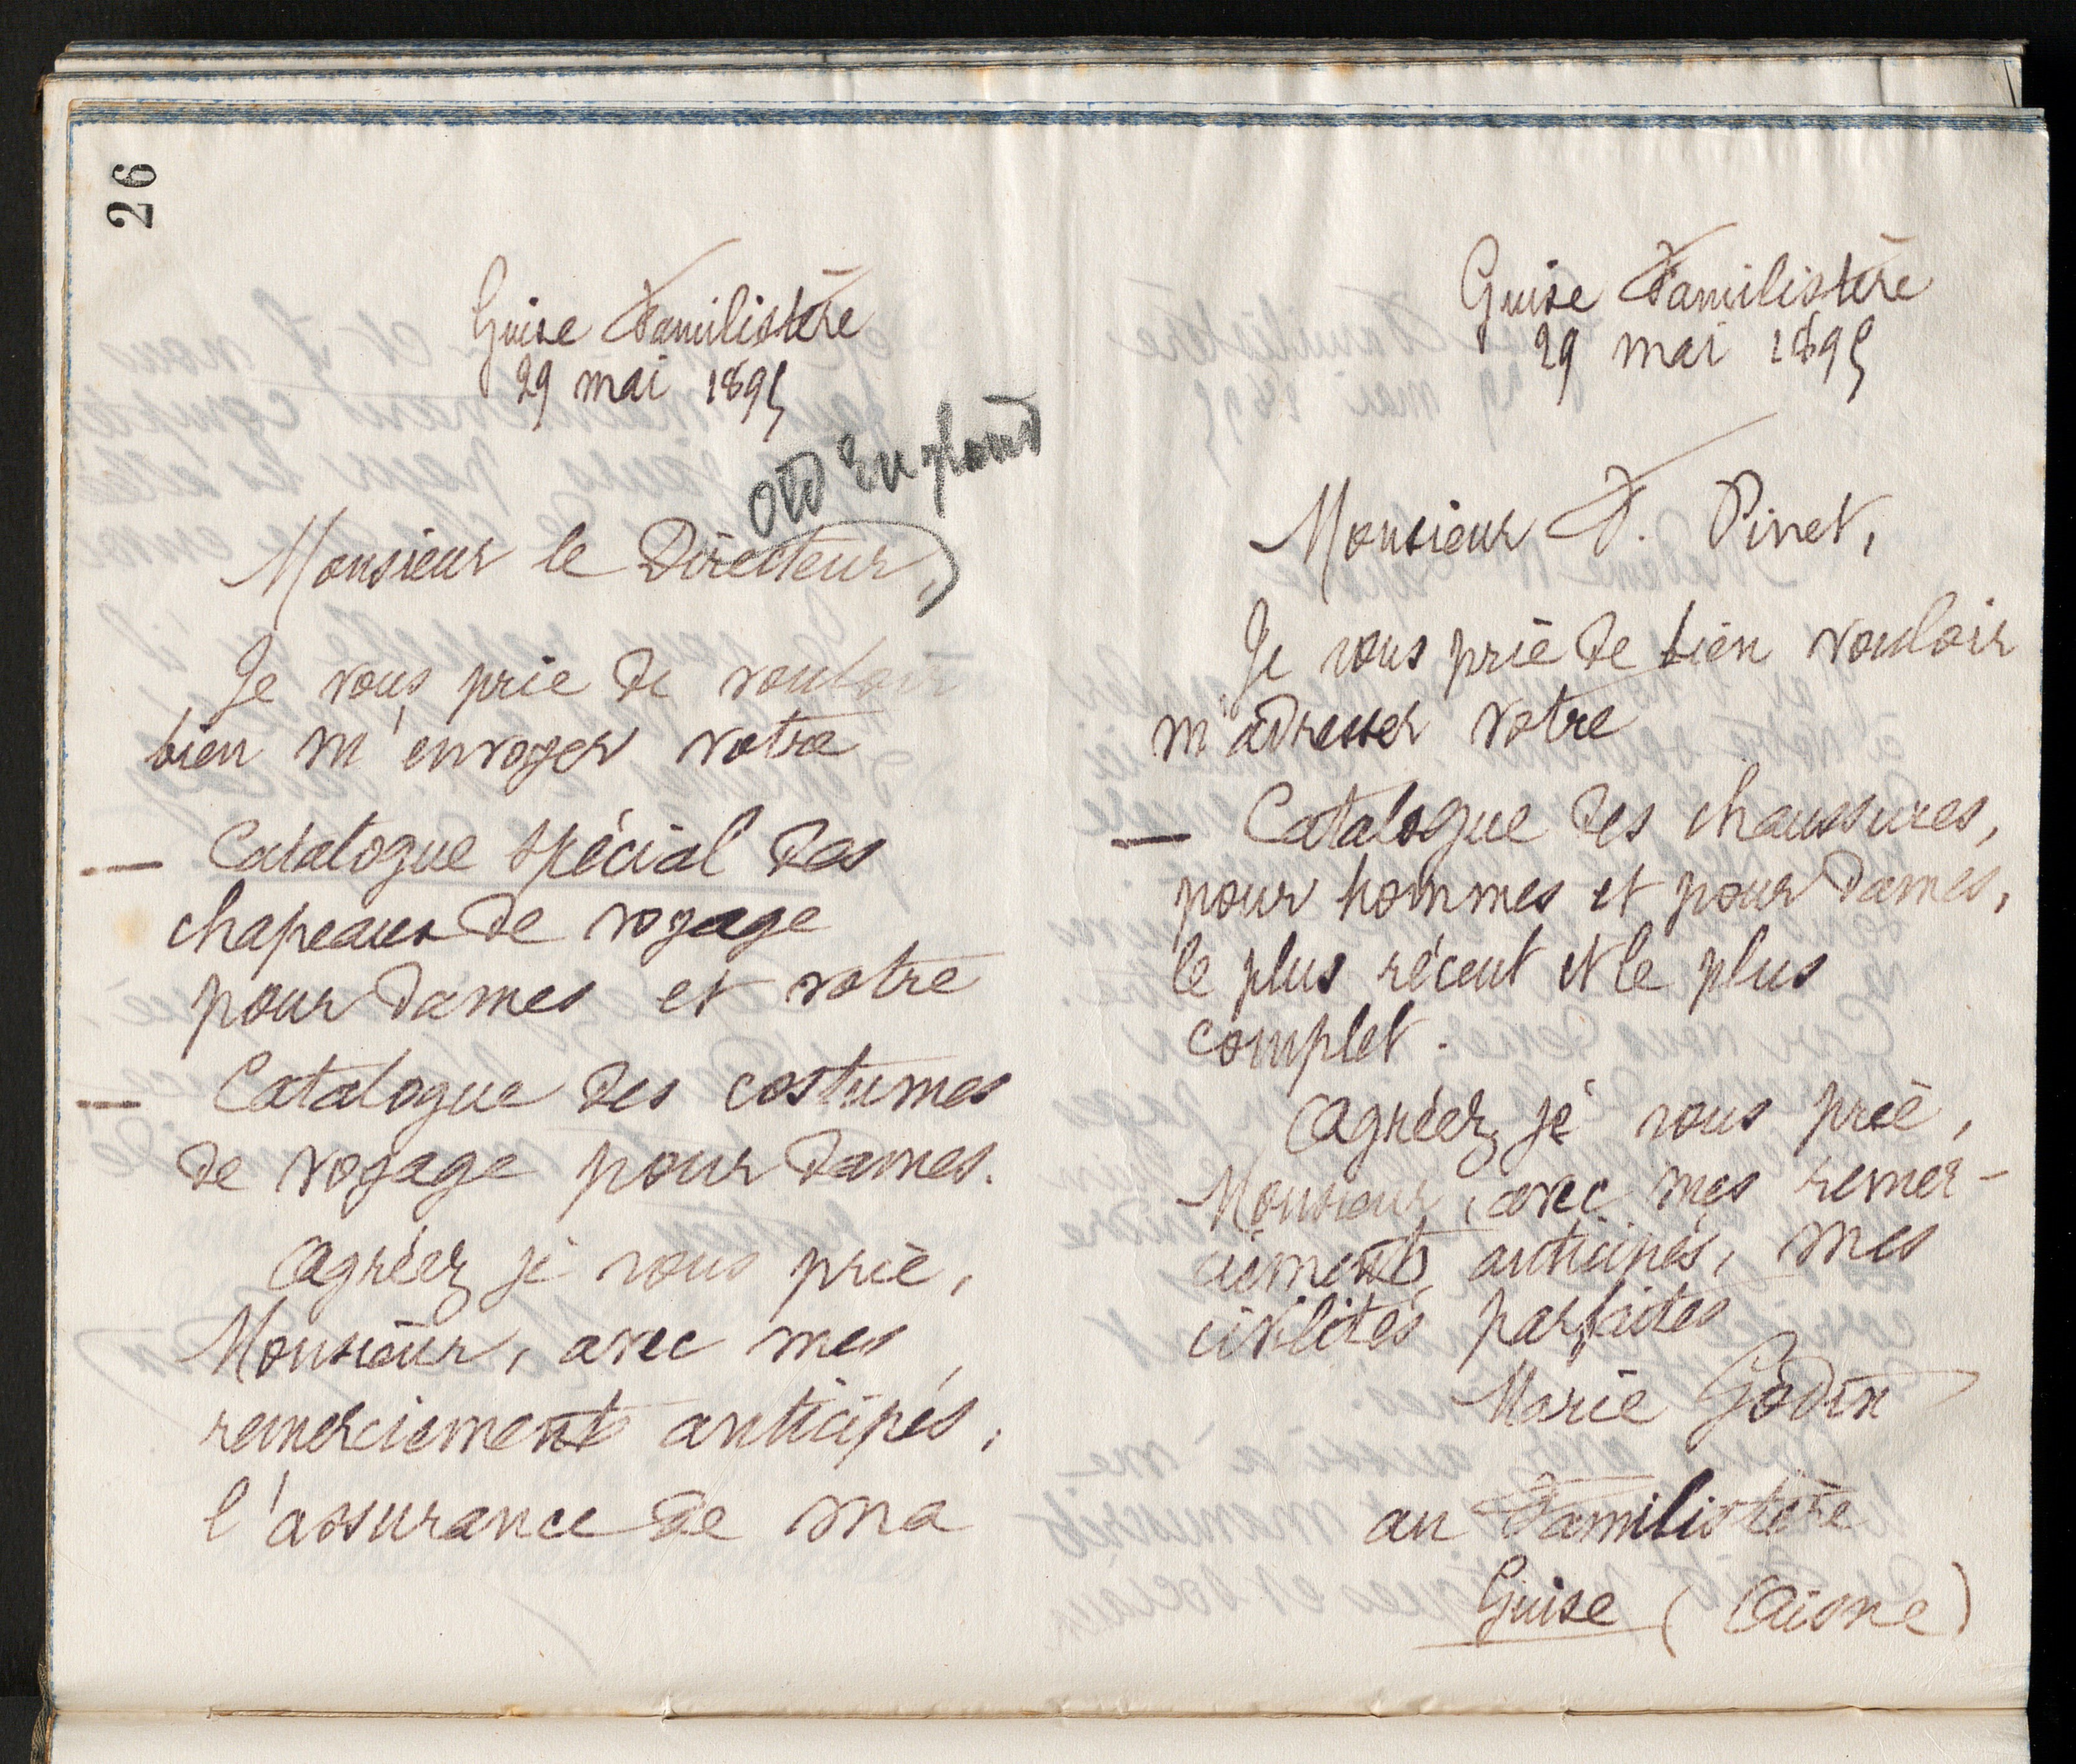 26
Guise Familistère
29 mai 1895
Old England
Monsieur le Directeur,
Je vous prie de vouloir
bien m'envoyer votre
— Catalogue spécial des
chapeaux de voyage
pour dames et votre
— Catalogue des costumes
de voyage pour dames.
Agréez je vous prie,
Monsieur, avec mes
remerciements anticipés,
l'assurance de ma
Guise Familistère
29 mai 1895
Monsieur F. Pinet,
Je vous prie de bien vouloir
m'adresser votre
— Catalogue des chaussures,
pour hommes et pour dames,
le plus récent et le plus
complet.
Agréez, je vous prie,
Monsieur, avec mes remer-
ciements anticipés, mes
civilités parfaites
Marie Godin
au Familistère
Guise (Aisne)